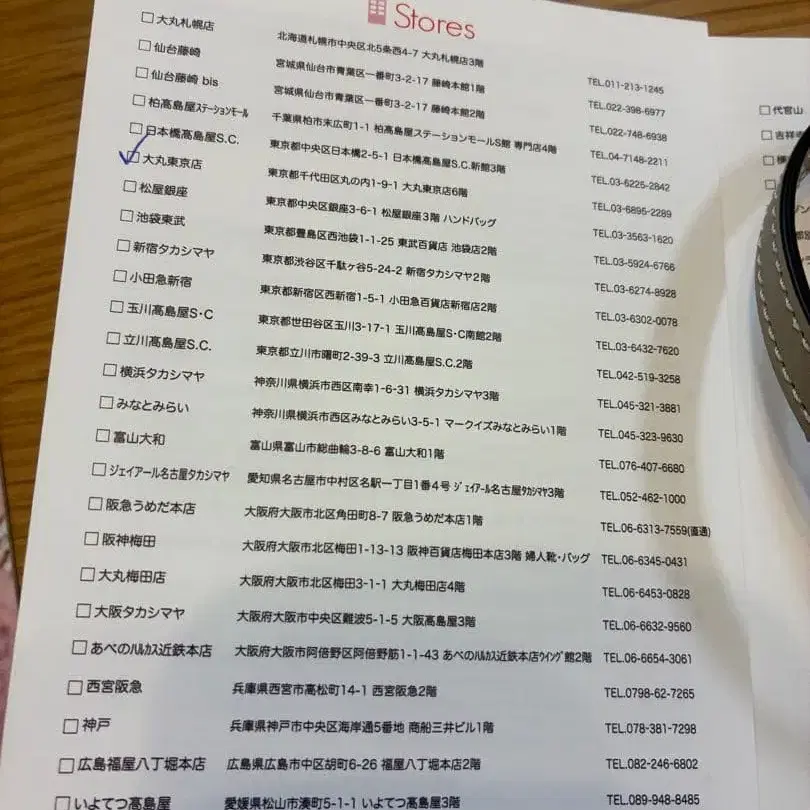 Stores
大丸札幌店 北海道札幌市中央区北5条西4-7 大丸札幌店3階 TEL.011-213-1245
仙台藤崎 宮城県仙台市青葉区一番町3-2-17 藤崎本館1階 TEL.022-398-6977
仙台藤崎 bis 宮城県仙台市青葉区一番町3-2-17 藤崎本館2階 TEL.022-748-6938
柏髙島屋ステーションモール 千葉県柏市末広町1-1 柏髙島屋ステーションモールS館 専門店4階 TEL.04-7148-2211
日本橋髙島屋S.C. 東京都中央区日本橋2-5-1 日本橋髙島屋S.C.新館3階 TEL.03-6225-2842
大丸東京店 東京都千代田区丸の内1-9-1 大丸東京店6階 TEL.03-6895-2289
松屋銀座 東京都中央区銀座3-6-1 松屋銀座3階 ハンドバッグ TEL.03-3563-1620
池袋東武 東京都豊島区西池袋1-1-25 東武百貨店 池袋店2階 TEL.03-5924-6766
新宿タカシマヤ 東京都渋谷区千駄ヶ谷5-24-2 新宿タカシマヤ2階 TEL.03-6274-8928
小田急新宿 東京都新宿区西新宿1-5-1 小田急百貨店新宿店2階 TEL.03-6302-0078
玉川髙島屋S・C 東京都世田谷区玉川3-17-1 玉川髙島屋S・C南館2階 TEL.03-6432-7620
立川髙島屋S.C. 東京都立川市曙町2-39-3 立川髙島屋S.C.2階 TEL.042-519-3258
横浜タカシマヤ 神奈川県横浜市西区南幸1-6-31 横浜タカシマヤ3階 TEL.045-321-3881
みなとみらい 神奈川県横浜市西区みなとみらい3-5-1 マークイズみなとみらい1階 TEL.045-323-9630
富山大和 富山県富山市総曲輪3-8-6 富山大和1階 TEL.076-407-6680
ジェイアール名古屋タカシマヤ 愛知県名古屋市中村区名駅一丁目1番4号 ジェイアール名古屋タカシマヤ3階 TEL.052-462-1000
阪急うめだ本店 大阪府大阪市北区角田町8-7 阪急うめだ本店1階 TEL.06-6313-7559(直通)
阪神梅田 大阪府大阪市北区梅田1-13-13 阪神百貨店梅田本店3階 婦人靴・バッグ TEL.06-6345-0431
大丸梅田店 大阪府大阪市北区梅田3-1-1 大丸梅田店4階 TEL.06-6453-0828
大阪タカシマヤ 大阪府大阪市中央区難波5-1-5 大阪髙島屋3階 TEL.06-6632-9560
あべのハルカス近鉄本店 大阪府大阪市阿倍野区阿倍野筋1-1-43 あべのハルカス近鉄本店ウイング館2階 TEL.06-6654-3061
西宮阪急 兵庫県西宮市高松町14-1 西宮阪急2階 TEL.0798-62-7265
神戸 兵庫県神戸市中央区海岸通5番地 商船三井ビル1階 TEL.078-381-7298
広島福屋八丁堀本店 広島県広島市中区胡町6-26 福屋八丁堀本店2階 TEL.082-246-6802
いよてつ髙島屋 愛媛県松山市湊町5-1-1 いよてつ髙島屋3階 TEL.089-948-8485
代官山
吉祥